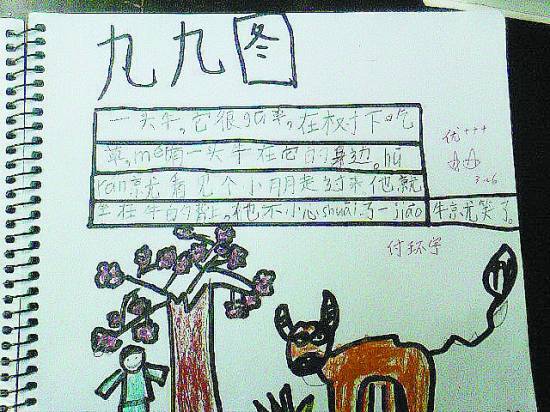 九九图
一头牛。它很 在树下吃
草, 一头牛在它的身边。hū
ran 看见个小朋走过来他就
坐在牛的背上。他不小心shuāi了一jiāo 牛 笑了。
优+++
3.26
付环宇